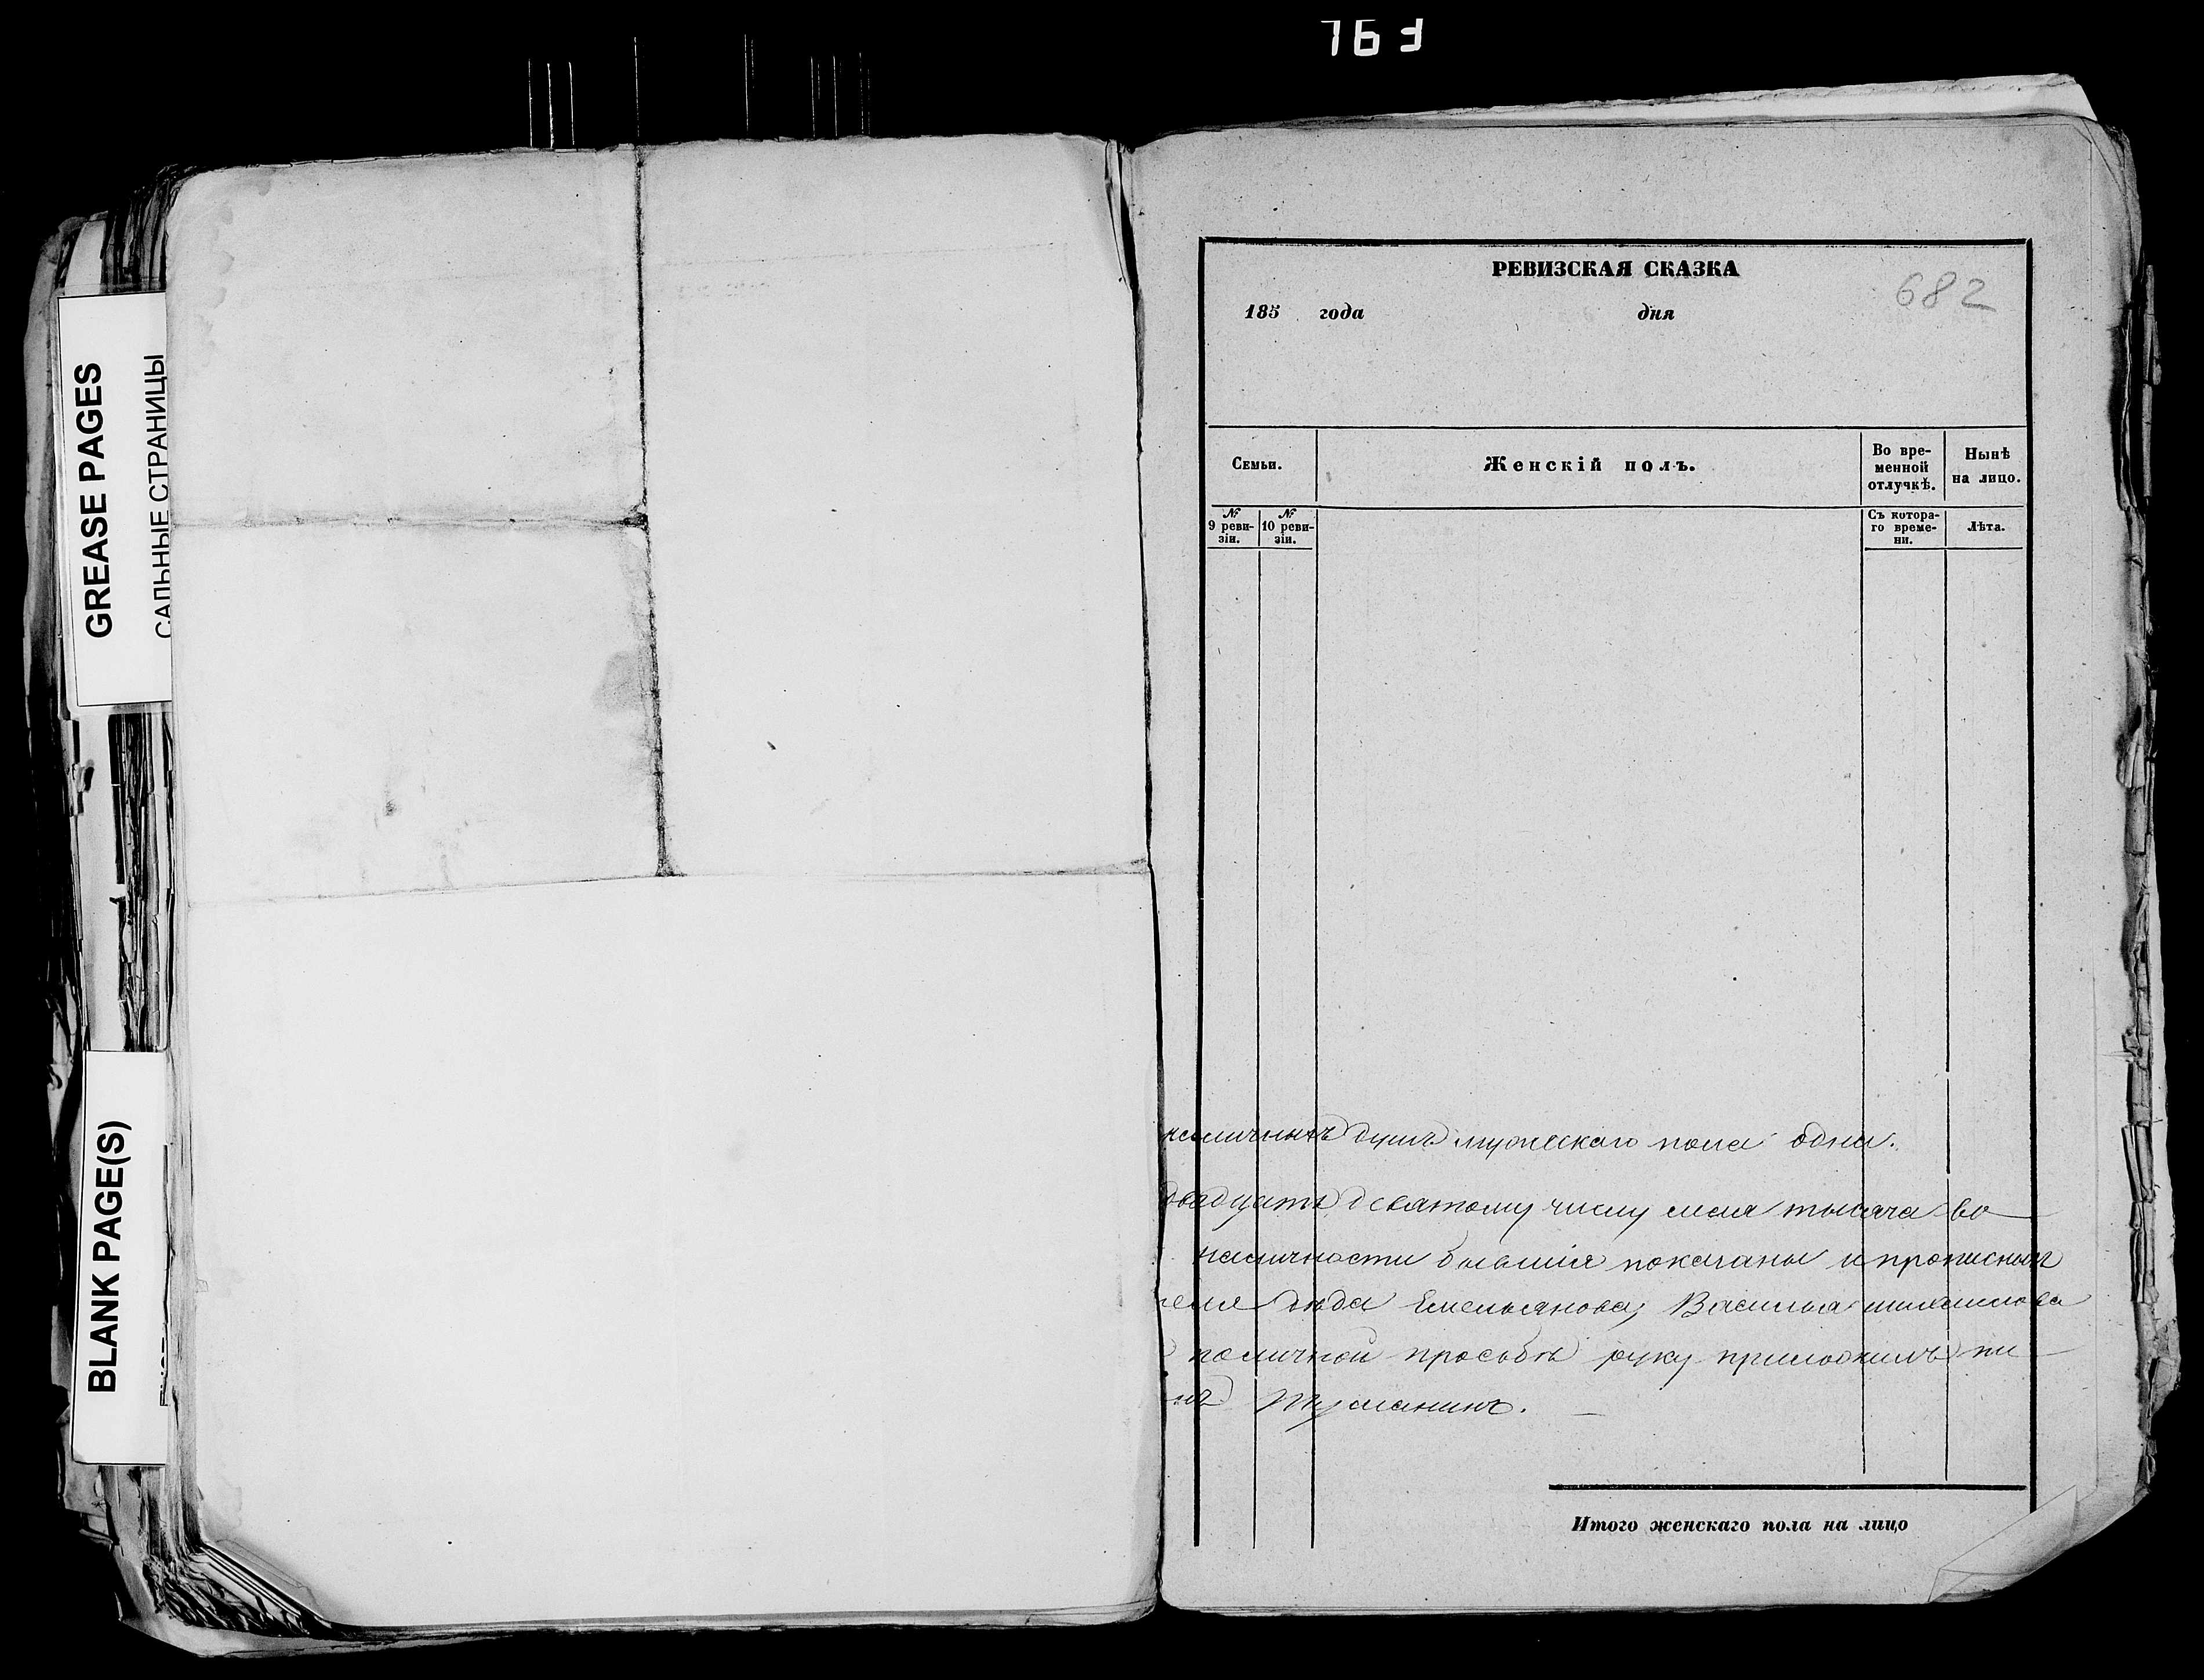 763
GREASE PAGES
САЛЬНЫЕ СТРАНИЦЫ
BLANK PAGE(S)
РЕВИЗСКАЯ СКАЗКА
682
185 года дня
Семьи.
Женскій полъ.
Во вре-
менной
отлучкѣ.
Нынѣ
на лицо.
№
9 реви-
зіи.
№
10 реви-
зіи.
Съ котора-
го време-
ни.
Лѣта.
наличныхъ душъ мужескаго пола одна.
двадцать девятому числу мая тысяча во
наличности бывшія показаны и прописныхъ
дѣда Емельянова, Василья
поличной прозьбѣ руку приложилъ пи
Тусланинъ.
Итого женскаго пола на лицо